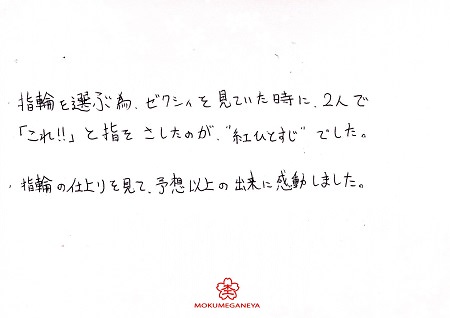 ・指輪を選ぶ為、ゼクシィを見ていた時に、2人で
「これ!!」と指をさしたのが、“紅ひとすじ”でした。
・指輪の仕上りを見て、予想以上の出来に感動しました。
MOKUMEGANEYA